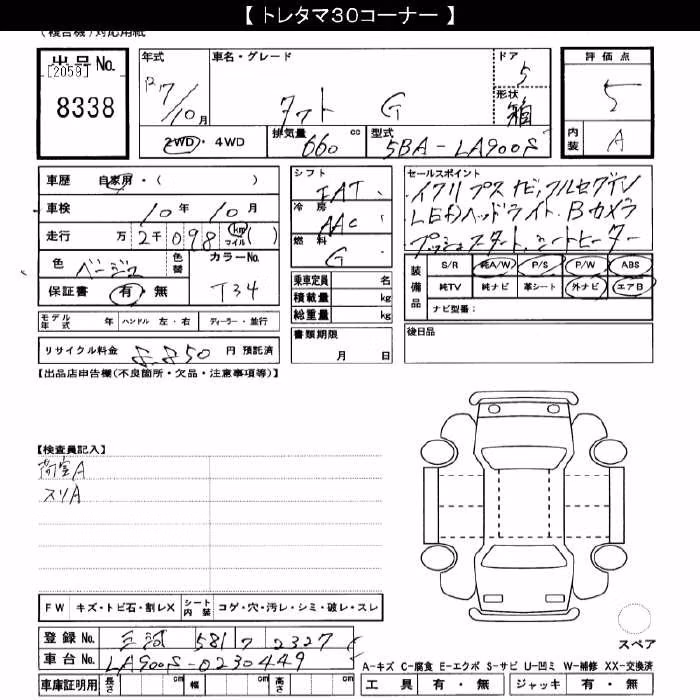 【 トレタマ30コーナー 】
(複合機)対応用紙
出品No.
[2059]
8338
年式 車名・グレード ドア 評価点
R7/10月 タフト G 5 5
形状 箱
2WD・4WD 排気量 660 cc 型式 5BA-LA900S 内装 A
車歴 自家用・( )
車検 10年 10月
走行 万 2千098 km マイル ( )
色 ベージュ 色替 カラーNo. T34
保証書 有・無
モデル年式 年 ハンドル 左・右 ディーラー・並行
リサイクル料金 8,850 円 預託済
シフト IAT
冷房 AAC
燃料 G
乗車定員 名
積載量 kg
総重量 kg
書類期限
月 日
セールスポイント
イクリプスナビ,フルセグTV
LEDヘッドライト.Bカメラ
プッシュスタート,シートヒーター
装備品
S/R 純A/W P/S P/W ABS
純TV 純ナビ 革シート 外ナビ エアB
ナビ型番:
後日品
【出品店申告欄(不良箇所・欠品・注意事項等)】
【検査員記入】
荷室A
スリA
FW キズ・トビ石・割レX シート内装 コゲ・穴・汚レ・シミ・破レ・スレ
登録No. 三河 581 フ 2327
車台No. LA900S-0230449
車庫証明用 長さ cm 幅 cm 高さ cm
スペア
A-キズ C-腐食 E-エクボ S-サビ U-凹ミ W-補修 XX-交換済
工具 有・無 ジャッキ 有・無